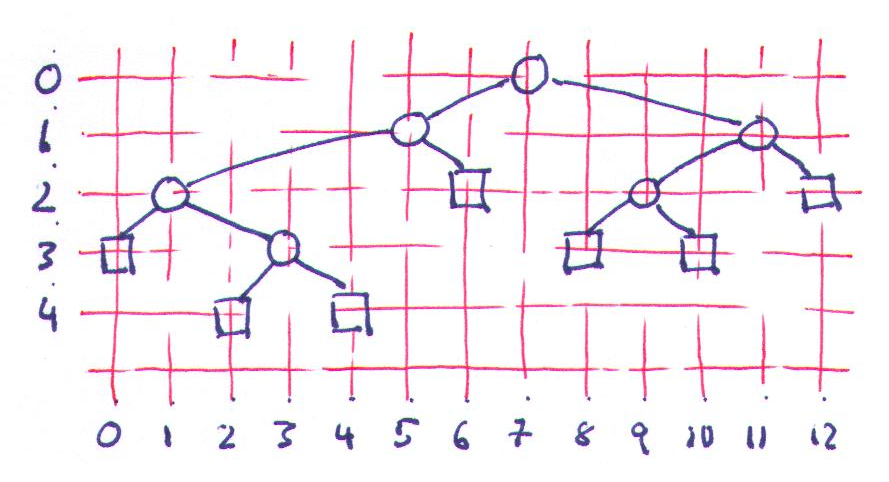 0
1
2
3
4
0 1 2 3 4 5 6 7 8 9 10 11 12